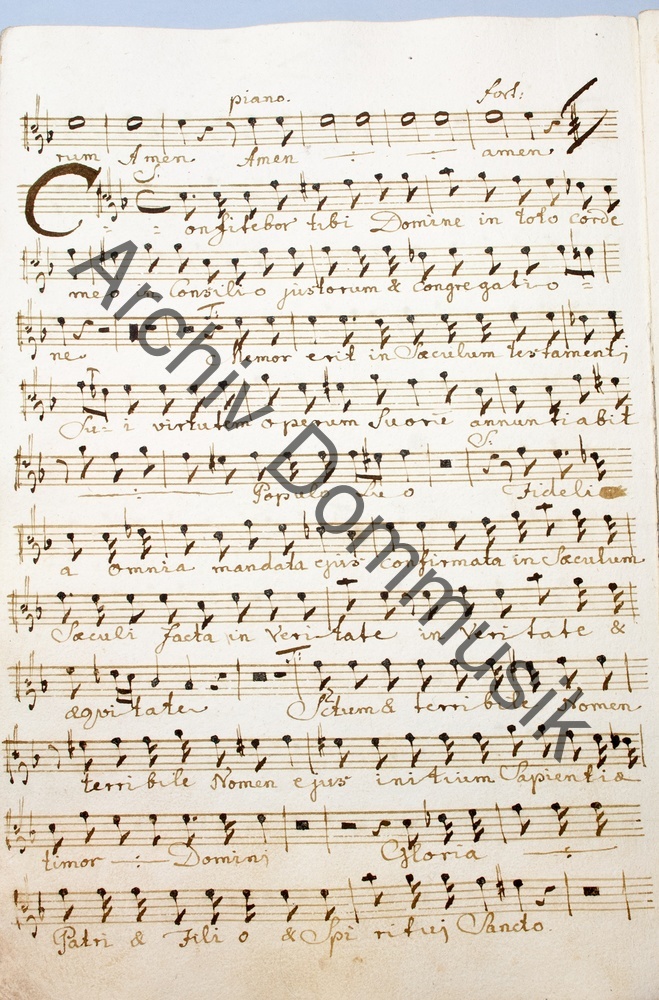 piano. fort:
rum Amen Amen amen
S.
Confitebor tibi Domine in toto corde
meo in Consilio justorum & Congregatio =
T.
ne Memor erit in Sæculum testamenti
Su=i virtutem operum Suorū annuntiabit
S.
Populo Suo Fideli
a omnia mandata ejus confirmata in Sæculum
Sæculi facta in veritate in veritate &
T.
æqvitate Sctum & terribile Nomen
terribile Nomen ejus initium Sapientiæ
timor Domini Gloria
Patri & Filio & Spiritui Sancto.
Archiv Dommusik